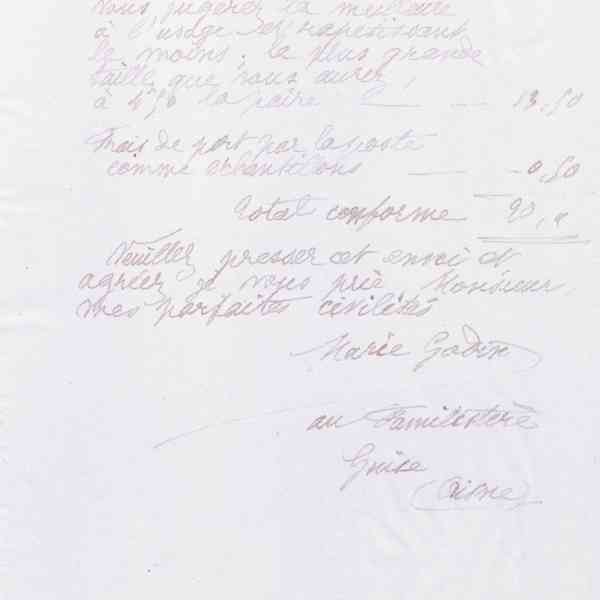 vous jugerez la meilleure
à l'usage et rapetissant
le moins. la plus grande
taille que vous aurez,
à 4,50 la paire 13,50
Frais de port par la poste
comme échantillons 0,50
Total conforme 20,"
Veuillez presser cet envoi et
agréer je vous prie, Monsieur,
mes parfaites civilités
Marie Godin
au Familistère
Guise
(Aisne)